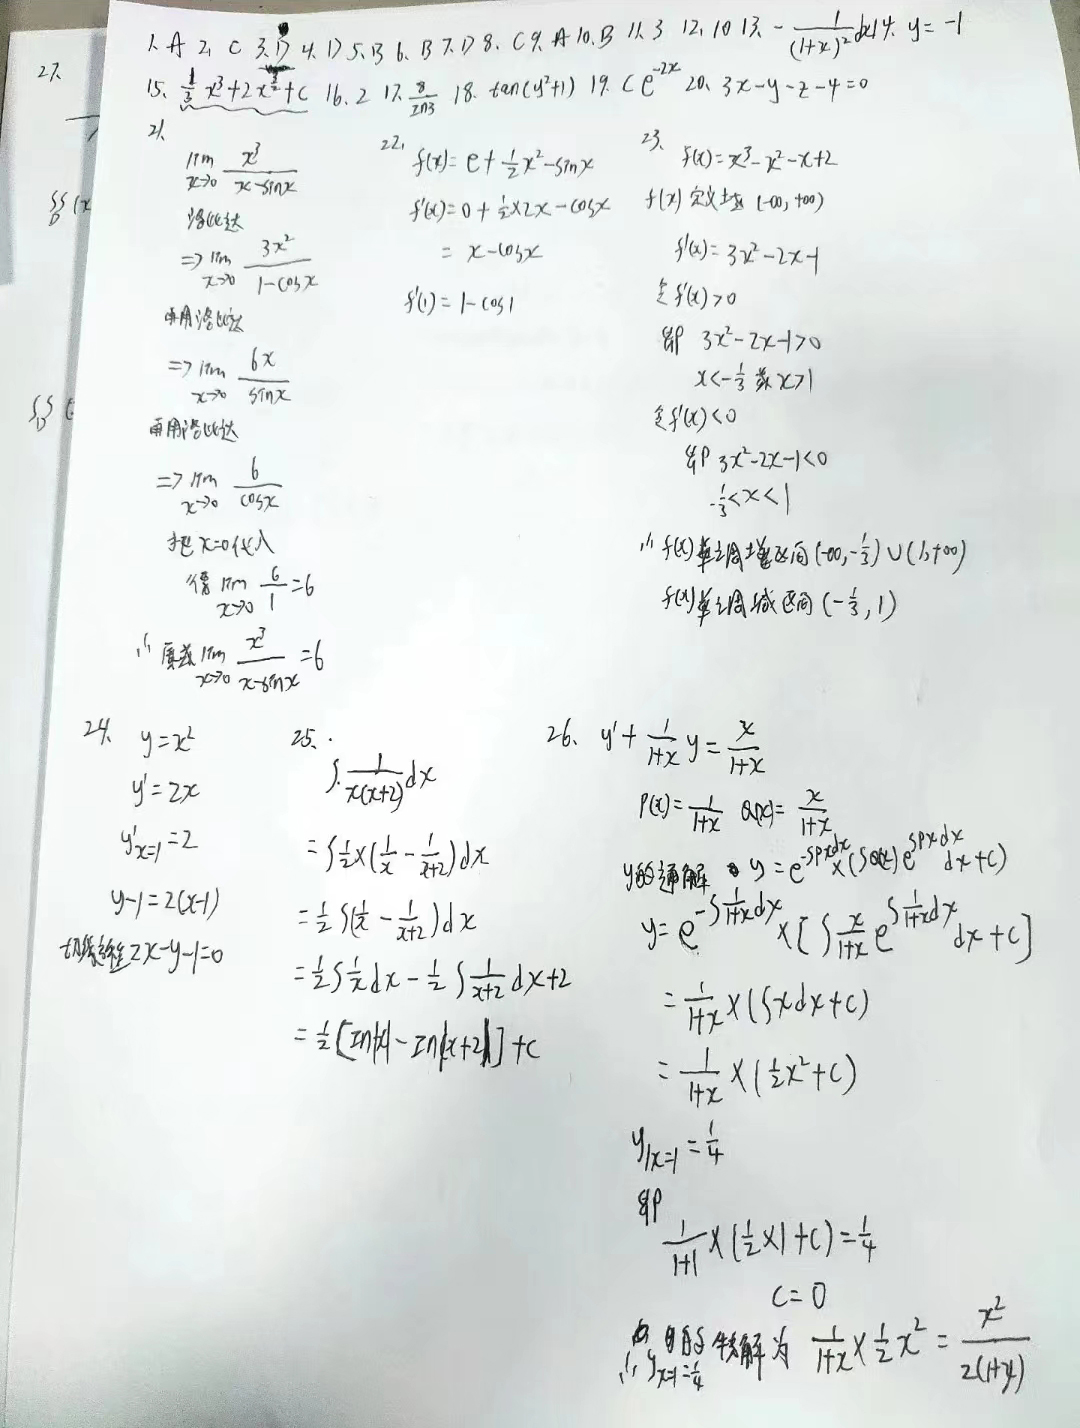 1. A 2. C 3. D 4. D 5. B 6. B 7. D 8. C 9. A 10. B 11. 3 12. 10 13. -1/(1+x)² dx 14. y = -1
15. 1/3 x³+2x^(3/2)+C 16. 2 17. 8/ln3 18. tan(y²+1) 19. Ce^(-2x) 20. 3x-y-z-4=0
21.
lim x→0 x³/(x-sinx)
洛必达
=> lim x→0 3x²/(1-cosx)
再用洛必达
=> lim x→0 6x/sinx
再用洛必达
=> lim x→0 6/cosx
把x=0代入
得 lim x→0 6/1 =6
∴原式 lim x→0 x³/(x-sinx) =6
22.
f(x)= e+1/2 x²-sinx
f'(x)=0+1/2×2x-cosx
= x-cosx
f'(1)=1-cos1
23.
f(x)=x³-x²-x+2
f(x)定义域(-∞,+∞)
f'(x)=3x²-2x-1
令f'(x)>0
即 3x²-2x-1>0
x<-1/3 或 x>1
令f'(x)<0
即 3x²-2x-1<0
-1/3<x<1
∴f(x)单调增区间(-∞,-1/3)∪(1,+∞)
f(x)单调减区间(-1/3,1)
24. y=x²
y'=2x
y'x=1=2
y-1=2(x-1)
切线方程2x-y-1=0
25.
∫ 1/(x(x+2)) dx
=∫1/2×(1/x - 1/(x+2))dx
=1/2∫(1/x - 1/(x+2))dx
=1/2∫1/x dx-1/2∫1/(x+2) dx+2
=1/2[ln|x|-ln|x+2|]+C
26. y'+1/(1+x) y= x/(1+x)
P(x)=1/(1+x) Q(x)= x/(1+x)
y的通解 y=e^(-∫Pxdx)×(∫Q(x)e^(∫Pxdx) dx+C)
y=e^(-∫1/(1+x)dx)×[∫x/(1+x) e^(∫1/(1+x)dx) dx+C]
=1/(1+x)×(∫xdx+C)
=1/(1+x)×(1/2x²+C)
y|x=1=1/4
即
1/(1+1)×(1/2×1+C)=1/4
C=0
∴yx=1=1/4 的特解为 1/(1+x)×1/2x²= x²/(2(1+x))
27.
∬D (x
∬D (